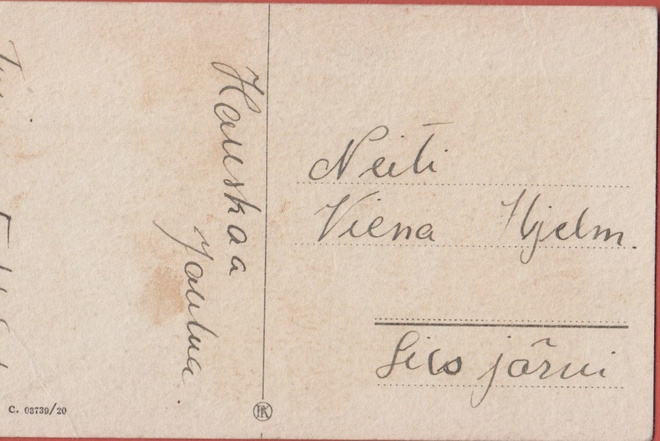 Hauskaa
Joulua
Neiti
Viena Hjelm.
Sics järvi
C. 03739/20